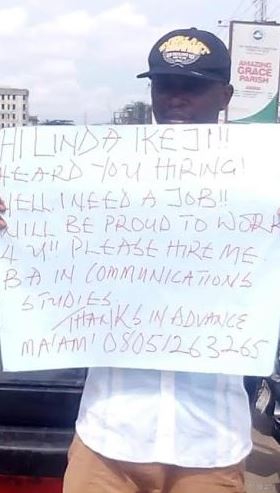 AMAZING
GRACE
PARISH
HI LINDA IKEJI!!!
HEARD YOU HIRING!
WELL I NEED A JOB!!
WILL BE PROUD TO WORK
4 U" PLEASE HIRE ME.
B A IN COMMUNICATIONS
STUDIES.
THANKS IN ADVANCE
MA'AM' 08051263265